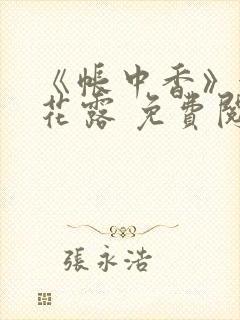 《帳中香》
花露 免費閱
張永浩